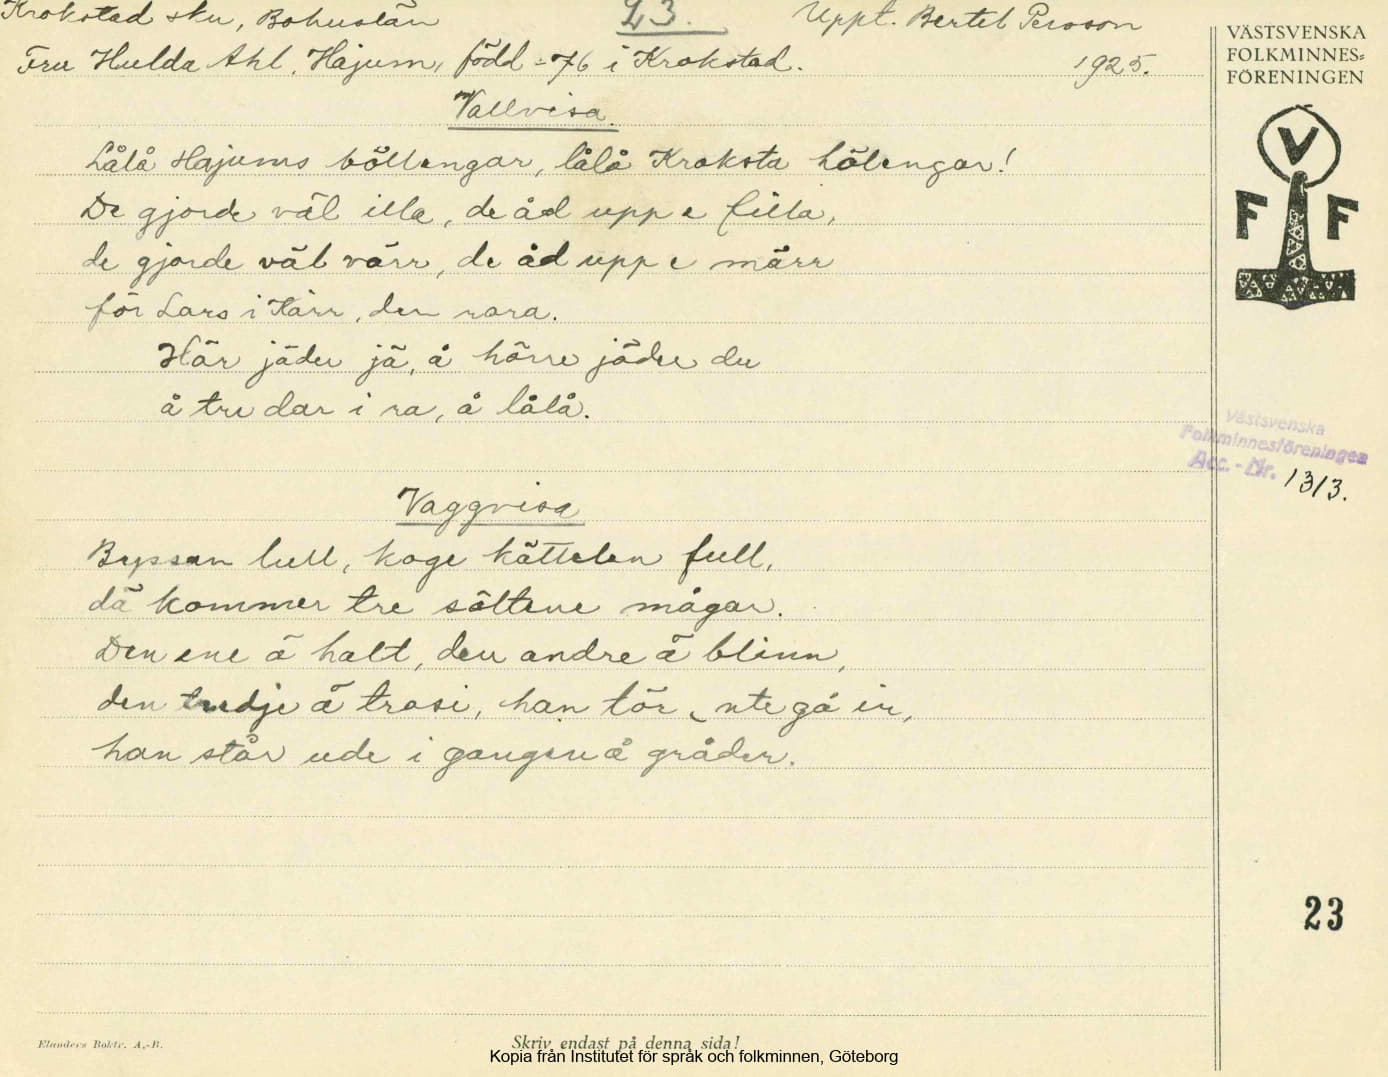 Krokstad skn, Bohuslän
23.
Uppt. Bertel Persson
Fru Hulda Ahl, Hajum, född -76 i Krokstad.
1925.
Vallvisa.
Lålå Hajums böllengar, lålå Kroksta hölengar!
De gjorde väl illa, de åd upp e filla,
de gjorde väl värr, de åd upp e märr
för Lars i Kärr, den rara.
Här jäder jä, å hörre jöder du
å tre dar i ra, å lålå.
Vaggvisa
Byssan lull, koge kättelen full,
dä kommer tre sältene mågar.
Den ene ä halt, den andre ä blinn,
den tredje ä trasi, han tör nte gå in,
han står ude i gangen å gråder.
VÄSTSVENSKA
FOLKMINNES=
FÖRENINGEN
V
F F
Västsvenska
Folkminnesföreningen
Acc. - Nr. 1313.
23
Elanders Boktr. A.-B.
Skriv endast på denna sida!
Kopia från Institutet för språk och folkminnen, Göteborg